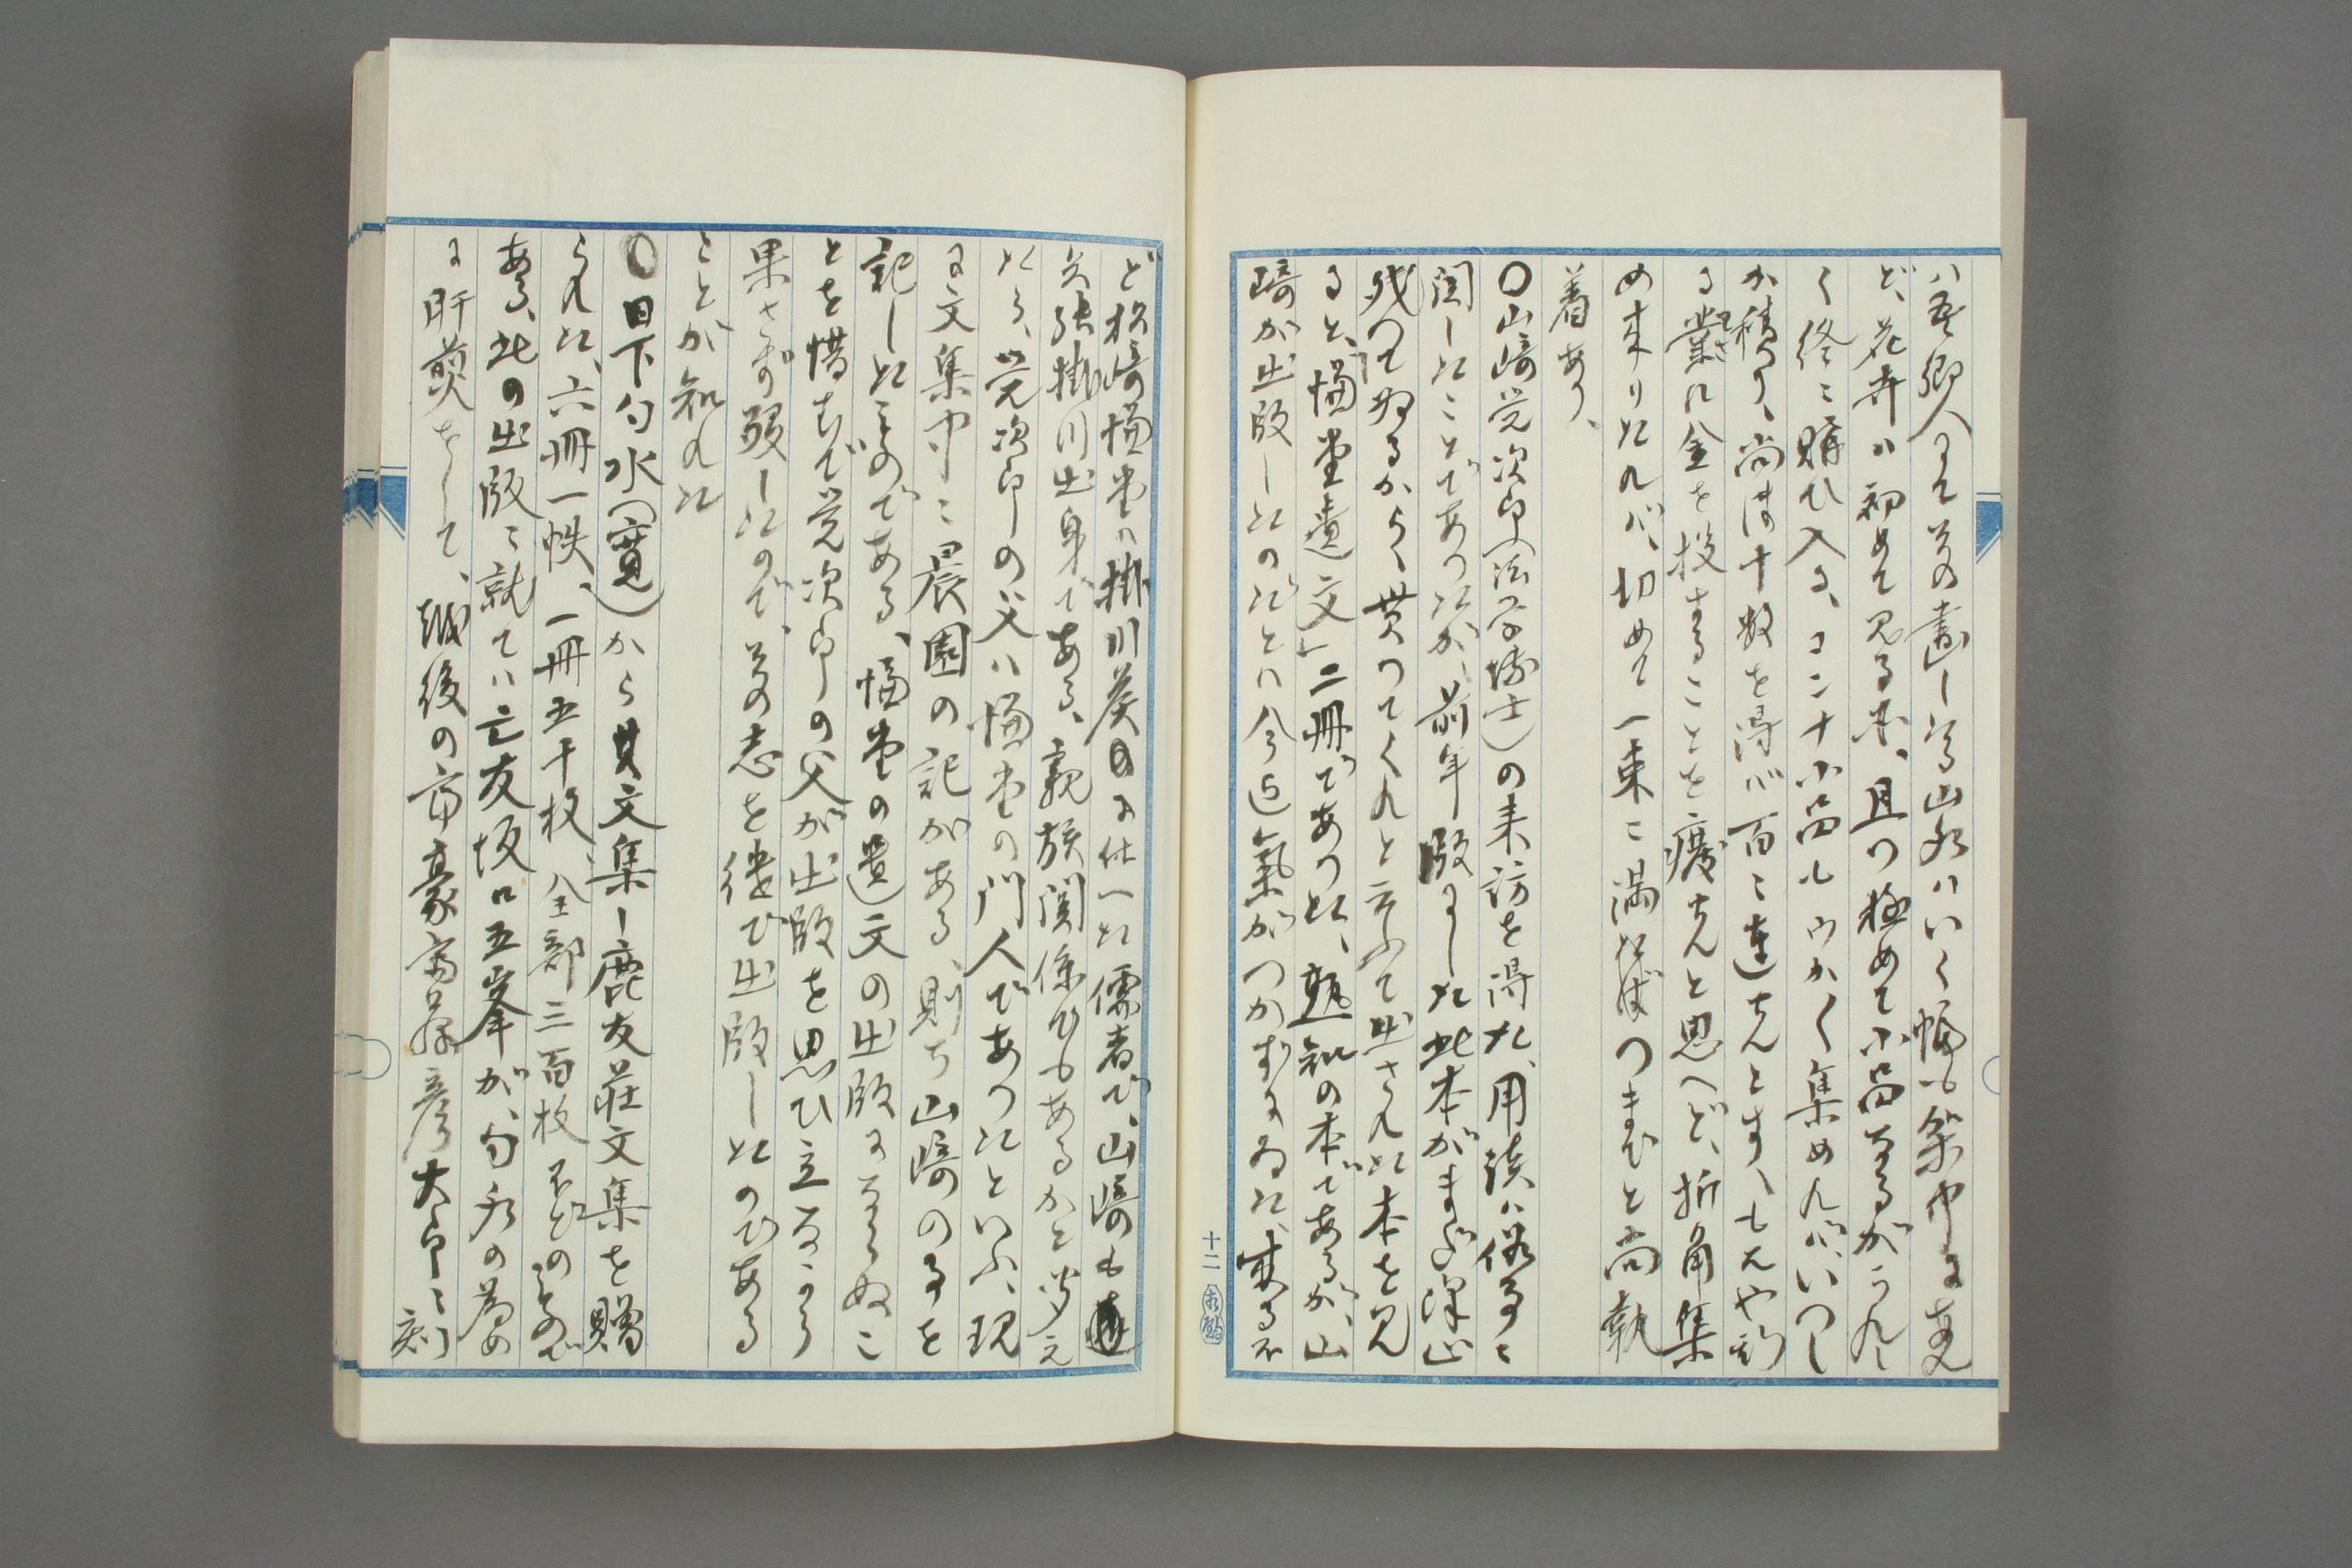 ハ吾郷人にて其の画し山水ハいく幅も架中に
ど、花卉ハ初めて見る、且つ極めて小品なるがうれし
く終に購ひ入る、コンナ小品ルウかく集めれバ、いつし
か積り、尚ほ十数を得バ百に達せんとす、もんや
る業に金を投することを廃せんと思へど、折角集
め来りたれバ、切めて一束に満たばつまむと尚執
着あり、
〇山崎覚次郎(法学博士)の来訪を得た、用談ハ俗事に
関したことであつたが、前年版にした此本がまだ沢山
残つてゐるから、貰つてくれと云ふて出された本を見
ると、慊堂遺文」二冊であつた、熟知の本であるが、山
崎が出版したのだとハ今迄気がつかずにゐた、来る
ど松崎慊堂ハ掛川藩に仕へた儒者で、山崎も
矢張掛川出身である、親族関係でもあるかと
たら、覚次郎の父ハ慊堂の門人であつたといふ、現
に文集中に晨園の記がある、則ち山崎の事を
記したものである、慊堂の遺文の出版にならぬこ
とを惜むで覚次郎の父が出版を思ひ立ながら
果さず歿したので、其の志を継ひで出版したのである
ことが知れた
〇日下勺水(寛)から其文集ー鹿友荘文集を贈
られた、六冊一帙、一冊五十枚全部三百枚ほどのもので
ある、此の出版に就てハ亡友坂口五峯が、勺水の為め
に肝煎をして、越後の富豪斎藤彦太郎に刻
十二